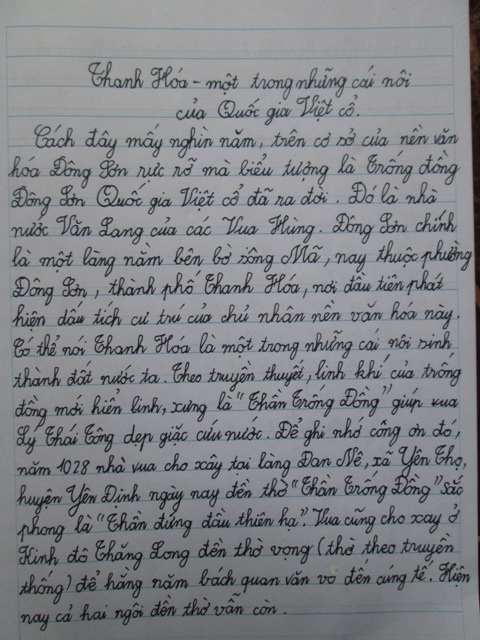 Thanh Hóa - một trong những cái nôi
của Quốc gia Việt cổ.
Cách đây mấy nghìn năm, trên cơ sở của nền văn
hóa Đông Sơn rực rỡ mà biểu tượng là Trống đồng
Đông Sơn Quốc gia Việt cổ đã ra đời. Đó là nhà
nước Văn Lang của các Vua Hùng. Đông Sơn chính
là một làng nằm bên bờ sông Mã, nay thuộc phường
Đông Sơn, thành phố Thanh Hóa, nơi đầu tiên phát
hiện dấu tích cư tru của chủ nhân nền văn hóa này.
Có thể nói Thanh Hóa là một trong những cái nôi sinh
thành đất nước ta. Theo truyền thuyết, linh khí của trống
đồng mới hiển linh, xưng là "Thần Trống Đồng" giúp vua
Lý Thái Tông dẹp giặc cứu nước. Để ghi nhớ công ơn đó,
năm 1028 nhà vua cho xây tại làng Đan Nê, xã Yên Thọ,
huyện Yên Định ngày nay đền thờ "Thần Trống Đồng" sắc
phong là "Thần đứng đầu thiên hạ". Vua cũng cho xay ở
Kinh đô Thăng Long đền thờ vọng (thờ theo truyền
thống) để hằng năm bách quan văn vo đến cúng tế. Hiện
nay cả hai ngôi đền thờ vẫn còn.